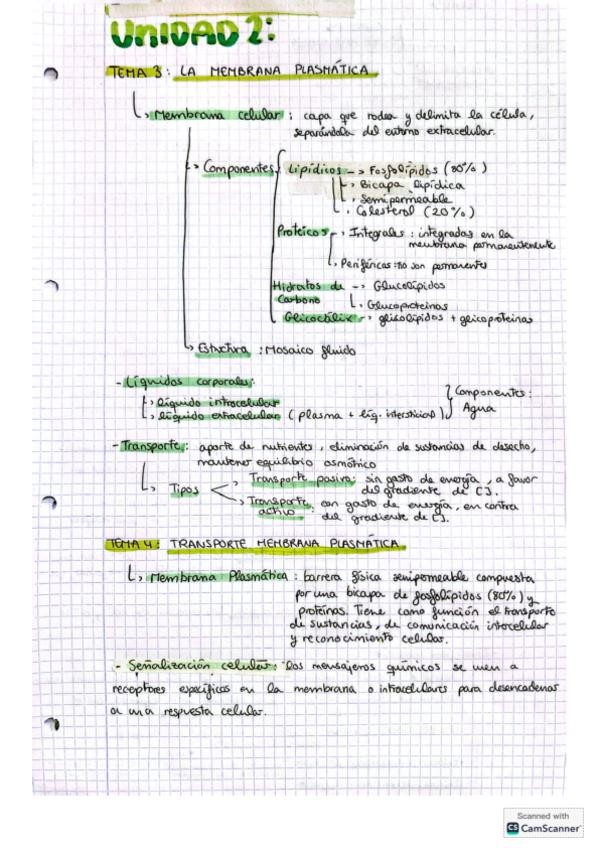 UNIDAD 2:
TEMA 3: LA MEMBRANA PLASMÁTICA
Membrana celular: capa que rodea y delimita la célula,
separándola del entorno extracelular.
Componentes Lipídicos -> Fosfolípidos (80%)
Bicapa lipídica
Semipermeable
Colesterol (20%)
Proteicos Integrales: integradas en la
membrana permanentemente
Periféricas: no son permanentes
Hidratos de -> Glucolípidos
Carbono Glucoproteinas
Glicocálix -> glicolípidos + glicoproteinas
Estructura: Mosaico fluido
- Líquidos corporales:
líquido intracelular
líquido extracelular (plasma + líq. intersticial)
Componentes:
Agua
- Transporte: aporte de nutrientes, eliminación de sustancias de desecho,
mantener equilibrio osmótico
Tipos
Transporte pasivo: sin gasto de energía, a favor
del gradiente de [].
Transporte activo: con gasto de energía, en contra
del gradiente de [].
TEMA 4: TRANSPORTE MEMBRANA PLASMÁTICA
Membrana Plasmática: barrera física semipermeable compuesta
por una bicapa de fosfolípidos (80%) y
proteínas. Tiene como función el transporte
de sustancias, de comunicación intercelular
y reconocimiento celular.
- Señalización celular: los mensajeros químicos se unen a
receptores específicos en la membrana o intracelulares para desencadenar
a una respuesta celular.
Scanned with
CS CamScanner